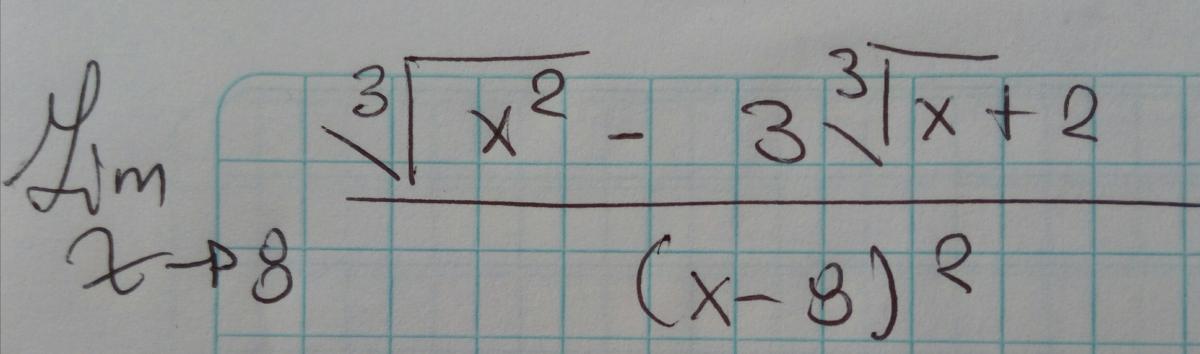 Lim x→8
∛x² - 3∛x + 2
(x - 8)²